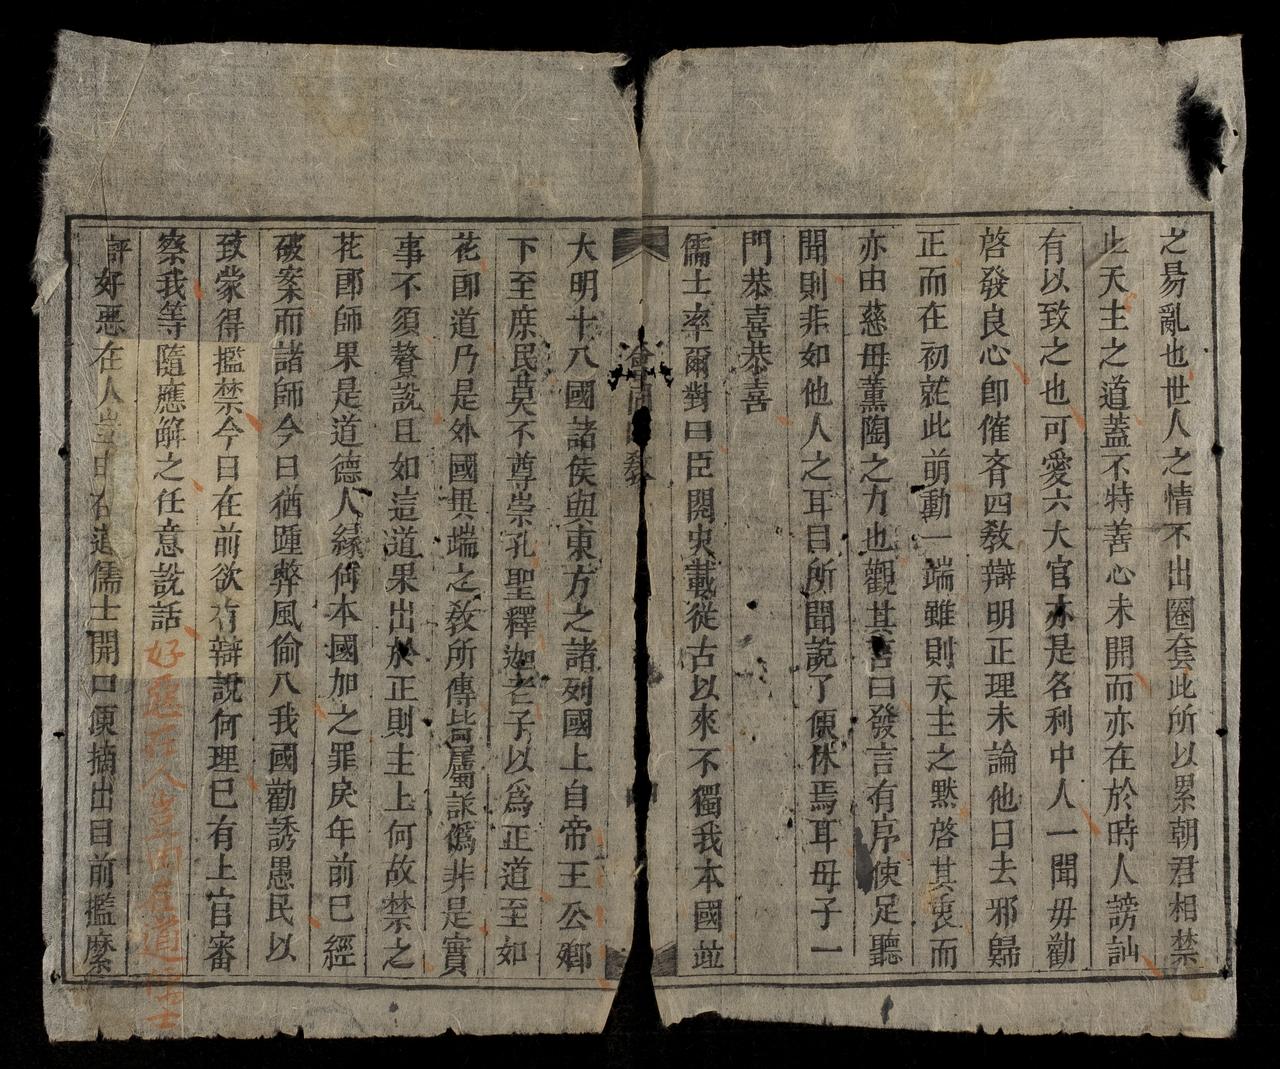 之易亂也世人之情不出圈套此所以累朝君相禁
此天主之道蓋不特善心未開而亦在於時人謗訕
有以致之也可愛六大官亦是名利中人一聞毋勸
啓發良心卽催斉四教辯明正理未論他日去邪歸
正而在初就此萌動一端雖則天主之黙啓其衷而
亦由慈母薰陶之力也觀其言曰發言有序使足聽
聞則非如他人之耳目所聞說了便休焉耳毋子一
門恭喜恭喜
儒士率爾對曰臣閱史載從古以來不獨我本國並
會同四教
大明十八國諸侯與東方之諸列國上自帝王公卿
下至庶民莫不尊崇孔聖釋迦老子以爲正道至如
花郎道乃是外國異端之教所傳皆屬詠僞非是實
事不須贅說且如這道果出於正則主上何故禁之
花郎師果是道德人緣何本國加之罪戾年前已經
破案而諸師今日猶踵弊風偷入我國勸誘愚民以
致蒙得檻禁今日在前欲有辯說何理已有上官審
察我等隨應觧之任意說話
好惡在人豈由在道儒士
評好惡在人豈由在道儒士開口便摘出目前檻縻